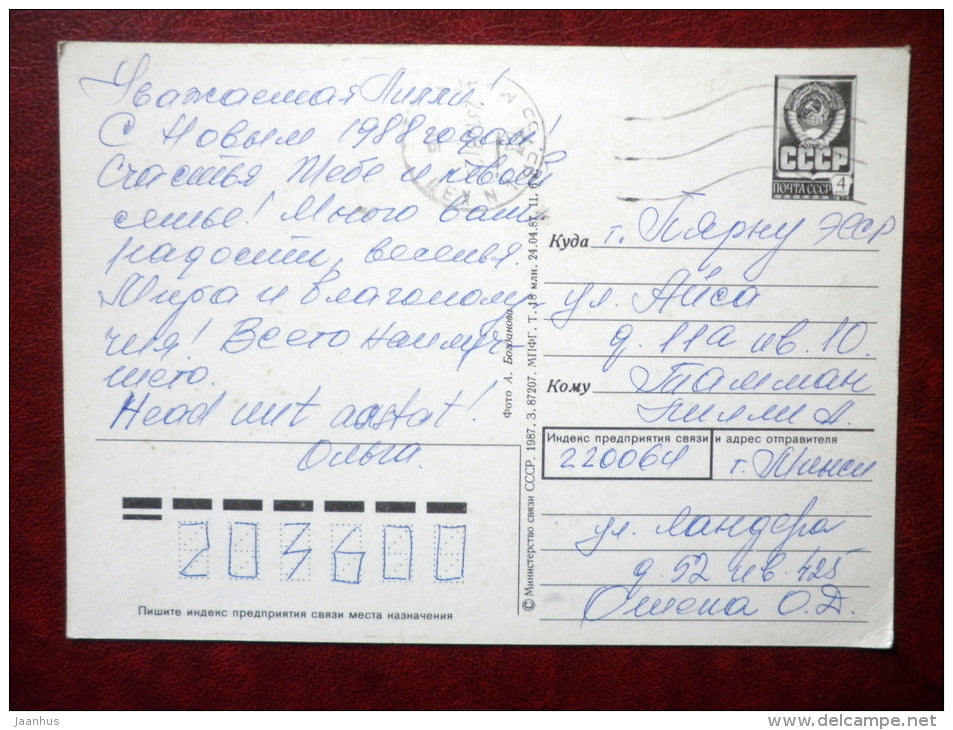 Уважаемая Лилли!
С Новым 1988 годом!
Счастья Тебе и твоей
семье! Много вам
радости, веселья.
Мира и благополу-
чия! Всего наилуч-
шего.
Head uut aastat!
Ольга.
СССР
ПОЧТА СССР 4
Куда г. Пярну ЭССР
ул. Айса
д. 11а кв. 10.
Кому Тамман
Лилли А.
Индекс предприятия связи и адрес отправителя
220064 г. Минск
ул. Ландера
д. 52 кв. 425
О.Д.
203600
Пишите индекс предприятия связи места назначения
Фото А. Богданова
© Министерство связи СССР, 1987, З. 87207, МПФГ. Т. 18 млн. 24.04.87. Ц.
jaanhus
www.delcampe.net